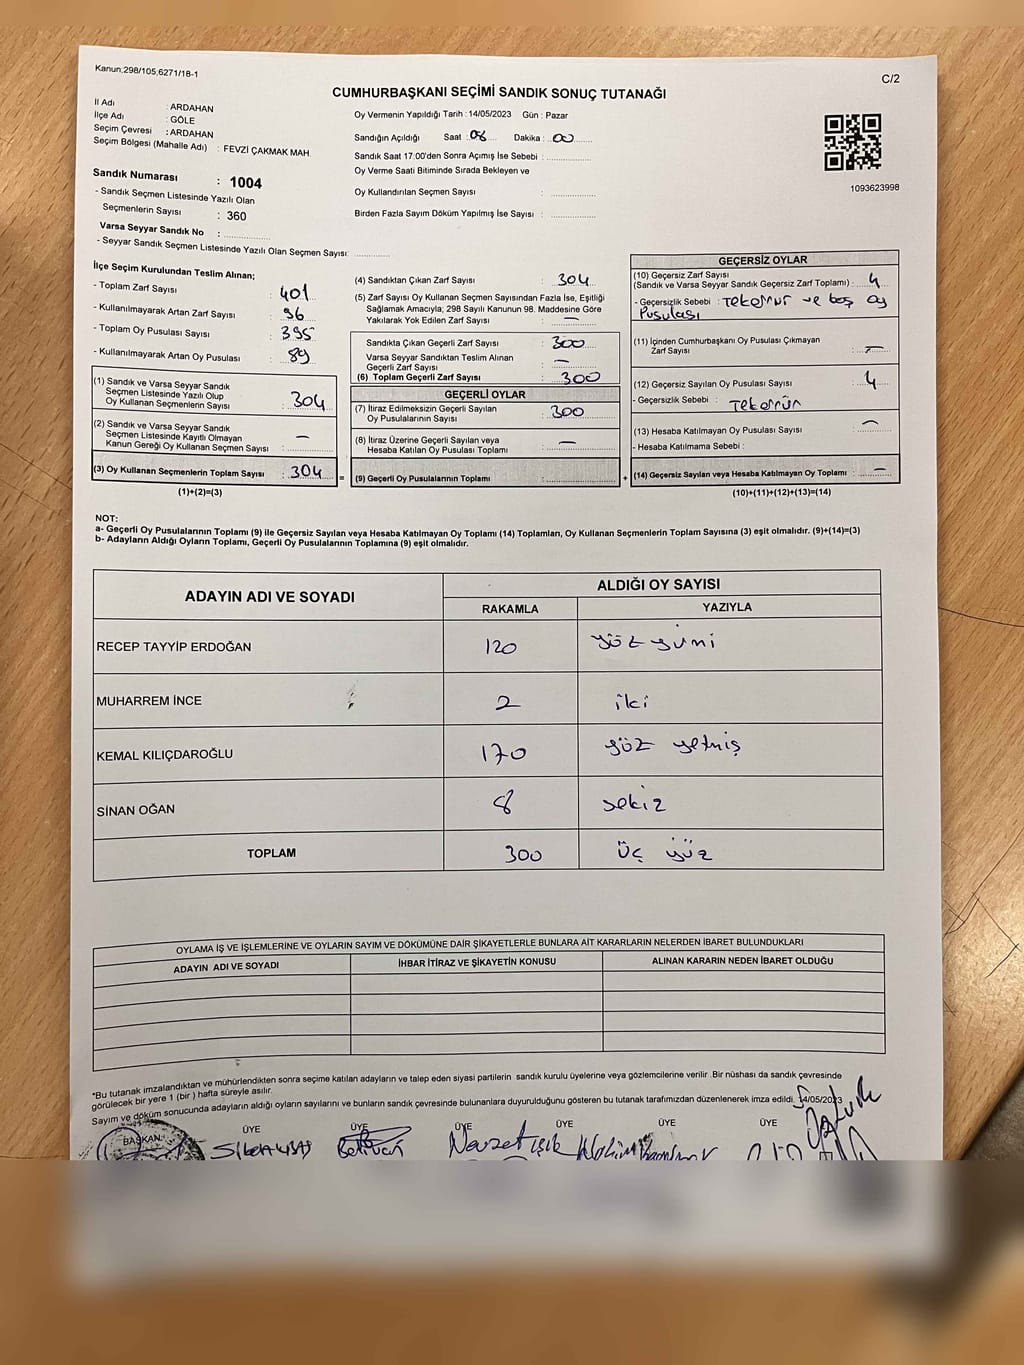 Kanun;298/105,6271/18-1
C/2
CUMHURBAŞKANI SEÇİMİ SANDIK SONUÇ TUTANAĞI
İl Adı : ARDAHAN
İlçe Adı : GÖLE
Seçim Çevresi : ARDAHAN
Seçim Bölgesi (Mahalle Adı) : FEVZİ ÇAKMAK MAH.
Sandık Numarası : 1004
- Sandık Seçmen Listesinde Yazılı Olan
Seçmenlerin Sayısı : 360
Varsa Seyyar Sandık No :
- Seyyar Sandık Seçmen Listesinde Yazılı Olan Seçmen Sayısı:
Oy Vermenin Yapıldığı Tarih : 14/05/2023 Gün : Pazar
Sandığın Açıldığı Saat : 08 Dakika : 00
Sandık Saat 17:00'den Sonra Açımış İse Sebebi :
Oy Verme Saati Bitiminde Sırada Bekleyen ve
Oy Kullandırılan Seçmen Sayısı :
Birden Fazla Sayım Döküm Yapılmış İse Sayısı :
1093623998
İlçe Seçim Kurulundan Teslim Alınan;
- Toplam Zarf Sayısı : 401
- Kullanılmayarak Artan Zarf Sayısı : 96
- Toplam Oy Pusulası Sayısı : 395
- Kullanılmayarak Artan Oy Pusulası : 89
(1) Sandık ve Varsa Seyyar Sandık
Seçmen Listesinde Yazılı Olup
Oy Kullanan Seçmenlerin Sayısı : 304
(2) Sandık ve Varsa Seyyar Sandık
Seçmen Listesinde Kayıtlı Olmayan
Kanun Gereği Oy Kullanan Seçmen Sayısı : —
(3) Oy Kullanan Seçmenlerin Toplam Sayısı : 304
(1)+(2)=(3)
=
(4) Sandıktan Çıkan Zarf Sayısı : 304
(5) Zarf Sayısı Oy Kullanan Seçmen Sayısından Fazla İse, Eşitliği
Sağlamak Amacıyla; 298 Sayılı Kanunun 98. Maddesine Göre
Yakılarak Yok Edilen Zarf Sayısı : —
Sandıkta Çıkan Geçerli Zarf Sayısı : 300
Varsa Seyyar Sandıktan Teslim Alınan
Geçerli Zarf Sayısı : —
(6) Toplam Geçerli Zarf Sayısı : 300
GEÇERLİ OYLAR
(7) İtiraz Edilmeksizin Geçerli Sayılan
Oy Pusulalarının Sayısı : 300
(8) İtiraz Üzerine Geçerli Sayılan veya
Hesaba Katılan Oy Pusulası Toplamı : —
(9) Geçerli Oy Pusulalarının Toplamı :
+
GEÇERSİZ OYLAR
(10) Geçersiz Zarf Sayısı
(Sandık ve Varsa Seyyar Sandık Geçersiz Zarf Toplamı) : 4
- Geçersizlik Sebebi : Tekerrür ve boş oy
Pusulası
(11) İçinden Cumhurbaşkanı Oy Pusulası Çıkmayan
Zarf Sayısı : —
(12) Geçersiz Sayılan Oy Pusulası Sayısı : 4
- Geçersizlik Sebebi : Tekerrür
(13) Hesaba Katılmayan Oy Pusulası Sayısı : —
- Hesaba Katılmama Sebebi :
(14) Geçersiz Sayılan veya Hesaba Katılmayan Oy Toplamı : —
(10)+(11)+(12)+(13)=(14)
NOT:
a- Geçerli Oy Pusulalarının Toplamı (9) ile Geçersiz Sayılan veya Hesaba Katılmayan Oy Toplamı (14) Toplamları, Oy Kullanan Seçmenlerin Toplam Sayısına (3) eşit olmalıdır. (9)+(14)=(3)
b- Adayların Aldığı Oyların Toplamı, Geçerli Oy Pusulalarının Toplamına (9) eşit olmalıdır.
ADAYIN ADI VE SOYADI ALDIĞI OY SAYISI
RAKAMLA YAZIYLA
RECEP TAYYİP ERDOĞAN 120 yüz yirmi
MUHARREM İNCE 2 iki
KEMAL KILIÇDAROĞLU 170 yüz yetmiş
SİNAN OĞAN 8 sekiz
TOPLAM 300 üç yüz
OYLAMA İŞ VE İŞLEMLERİNE VE OYLARIN SAYIM VE DÖKÜMÜNE DAİR ŞİKAYETLERLE BUNLARA AİT KARARLARIN NELERDEN İBARET BULUNDUKLARI
ADAYIN ADI VE SOYADI İHBAR İTİRAZ VE ŞİKAYETİN KONUSU ALINAN KARARIN NEDEN İBARET OLDUĞU
*Bu tutanak imzalandıktan ve mühürlendikten sonra seçime katılan adayların ve talep eden siyasi partilerin sandık kurulu üyelerine veya gözlemcilerine verilir .Bir nüshası da sandık çevresinde
görülecek bir yere 1 (bir ) hafta süreyle asılır.
Sayım ve döküm sonucunda adayların aldığı oyların sayılarını ve bunların sandık çevresinde bulunanlara duyurulduğunu gösteren bu tutanak tarafımızdan düzenlenerek imza edildi. 14/05/2023
BAŞKAN ÜYE ÜYE ÜYE ÜYE ÜYE ÜYE
Nevzet ışık